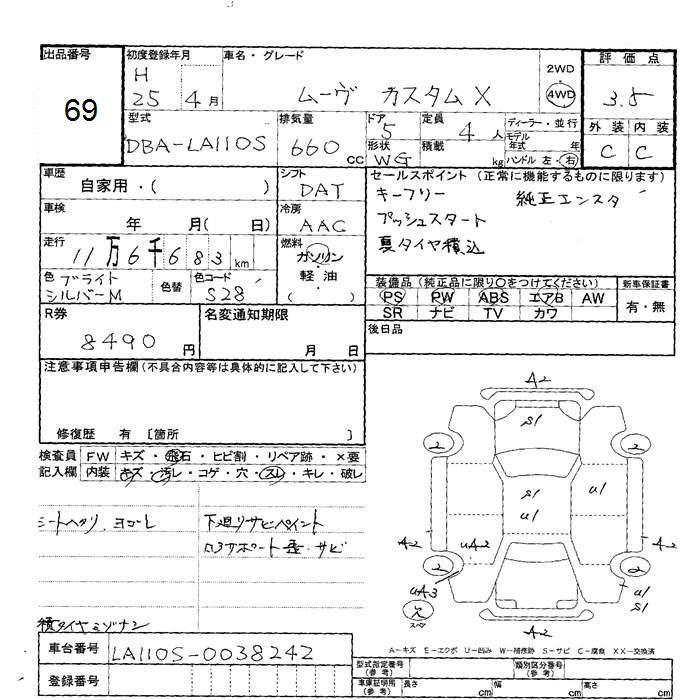 出品番号
69
初度登録年月
H
25 4 月
車名・グレード
ムーヴ カスタム X
2WD
4WD
評価点
3.5
外装 内装
C C
型式
DBA-LA110S
排気量
660 cc
ドア
5
形状
WG
定員
4 人
積載
kg
ディーラー・並行
モデル
年式 年
ハンドル 左・右
車歴
自家用・( )
シフト
DAT
車検
年 月( 日)
冷房
AAC
走行
11万6千683 km
燃料
ガソリン
軽油
( )
色 ブライト
シルバーM
色替
色コード
S28
セールスポイント (正常に機能するものに限ります)
キーフリー 純正エンスタ
プッシュスタート
夏タイヤ積込
装備品(純正品に限り○をつけてください)
PS PW ABS エアB AW
SR ナビ TV カワ
新車保証書
有・無
R券
8490 円
名変通知期限
月 日
後日品
注意事項申告欄(不具合内容等は具体的に記入して下さい)
修復歴 有 〔箇所 〕
検査員 FW キズ・飛石・ヒビ割・リペア跡・×要
記入欄 内装 キズ・汚レ・コゲ・穴・スレ・キレ・破レ
シートヘタリ、ヨゴレ
下廻りサビペイント
ロアサポート歪・サビ
積タイヤミゾナシ
A2
S1
2
2
S1
U1
U1
A2
UA2
A2
2
2
UA3
欠
スペア
U1
S1
A2
A-キズ E-エクボ U-凹み W-補修跡 S-サビ C-腐食 XX-交換済
車台番号
LA110S-0038242
登録番号
型式指定番号
(参考)
類別区分番号
(参考)
車庫証明用
(参考)
長さ cm 幅 cm 高さ cm